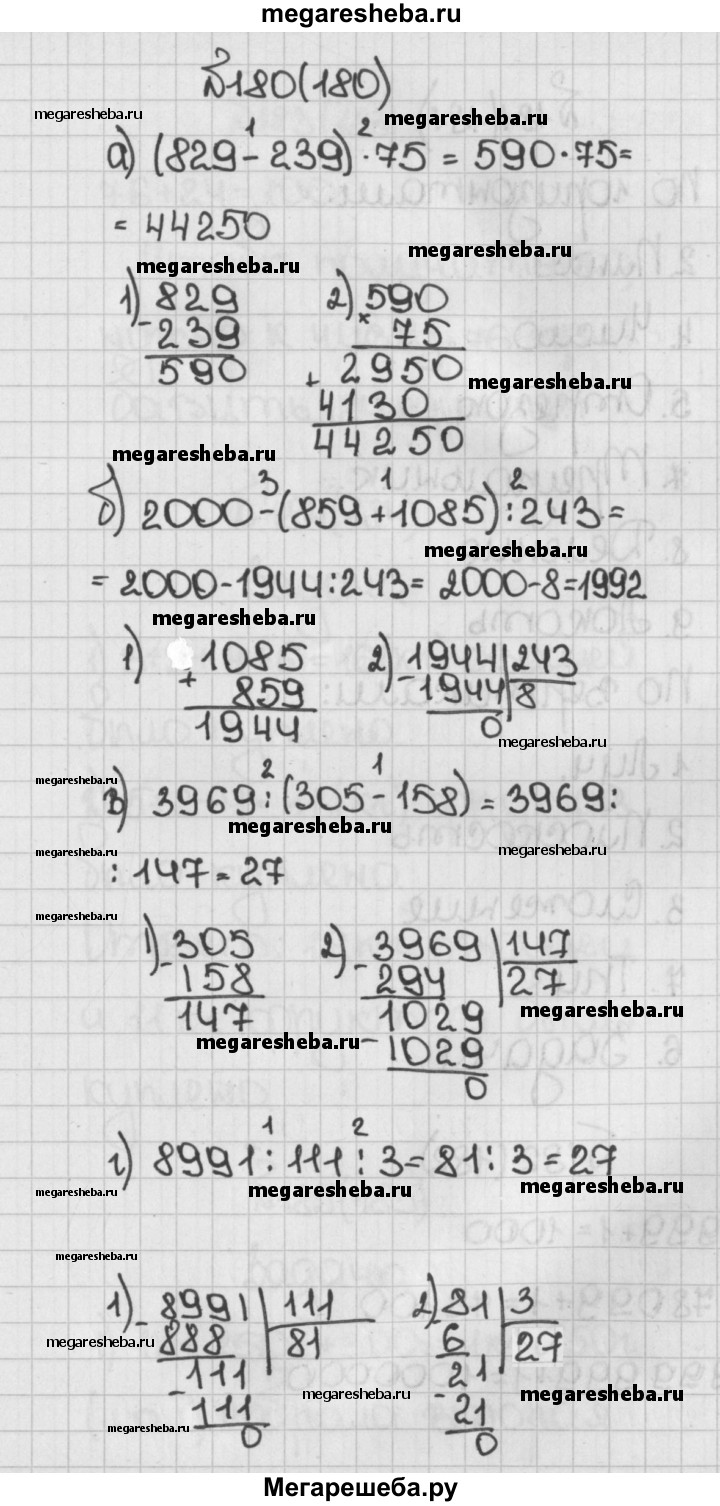 megaresheba.ru
№180(180)
megaresheba.ru megaresheba.ru
1 2
а) (829-239)·75 = 590·75=
= 44250
megaresheba.ru
megaresheba.ru
1) 829 2) 590
- 239 × 75
590 + 2950
megaresheba.ru
4130
44250
megaresheba.ru
3 1 2
б) 2000-(859+1085):243=
megaresheba.ru
= 2000-1944:243= 2000-8=1992
megaresheba.ru
1) 1085 2) 1944 243
+ 859 - 1944 8
1944 0
megaresheba.ru
megaresheba.ru
2 1
в) 3969:(305-158) = 3969:
megaresheba.ru
megaresheba.ru megaresheba.ru
: 147 = 27
megaresheba.ru
1) 305 2) 3969 147
- 158 - 294 27
147 1029
megaresheba.ru
megaresheba.ru
- 1029
0
1 2
г) 8991:111:3=81:3=27
megaresheba.ru megaresheba.ru megaresheba.ru
megaresheba.ru
1) 8991 111 2) 81 3
megaresheba.ru
- 888 81 - 6 27
111 21
megaresheba.ru megaresheba.ru
- 111 - 21
megaresheba.ru
0 0
Мегарешеба.ру